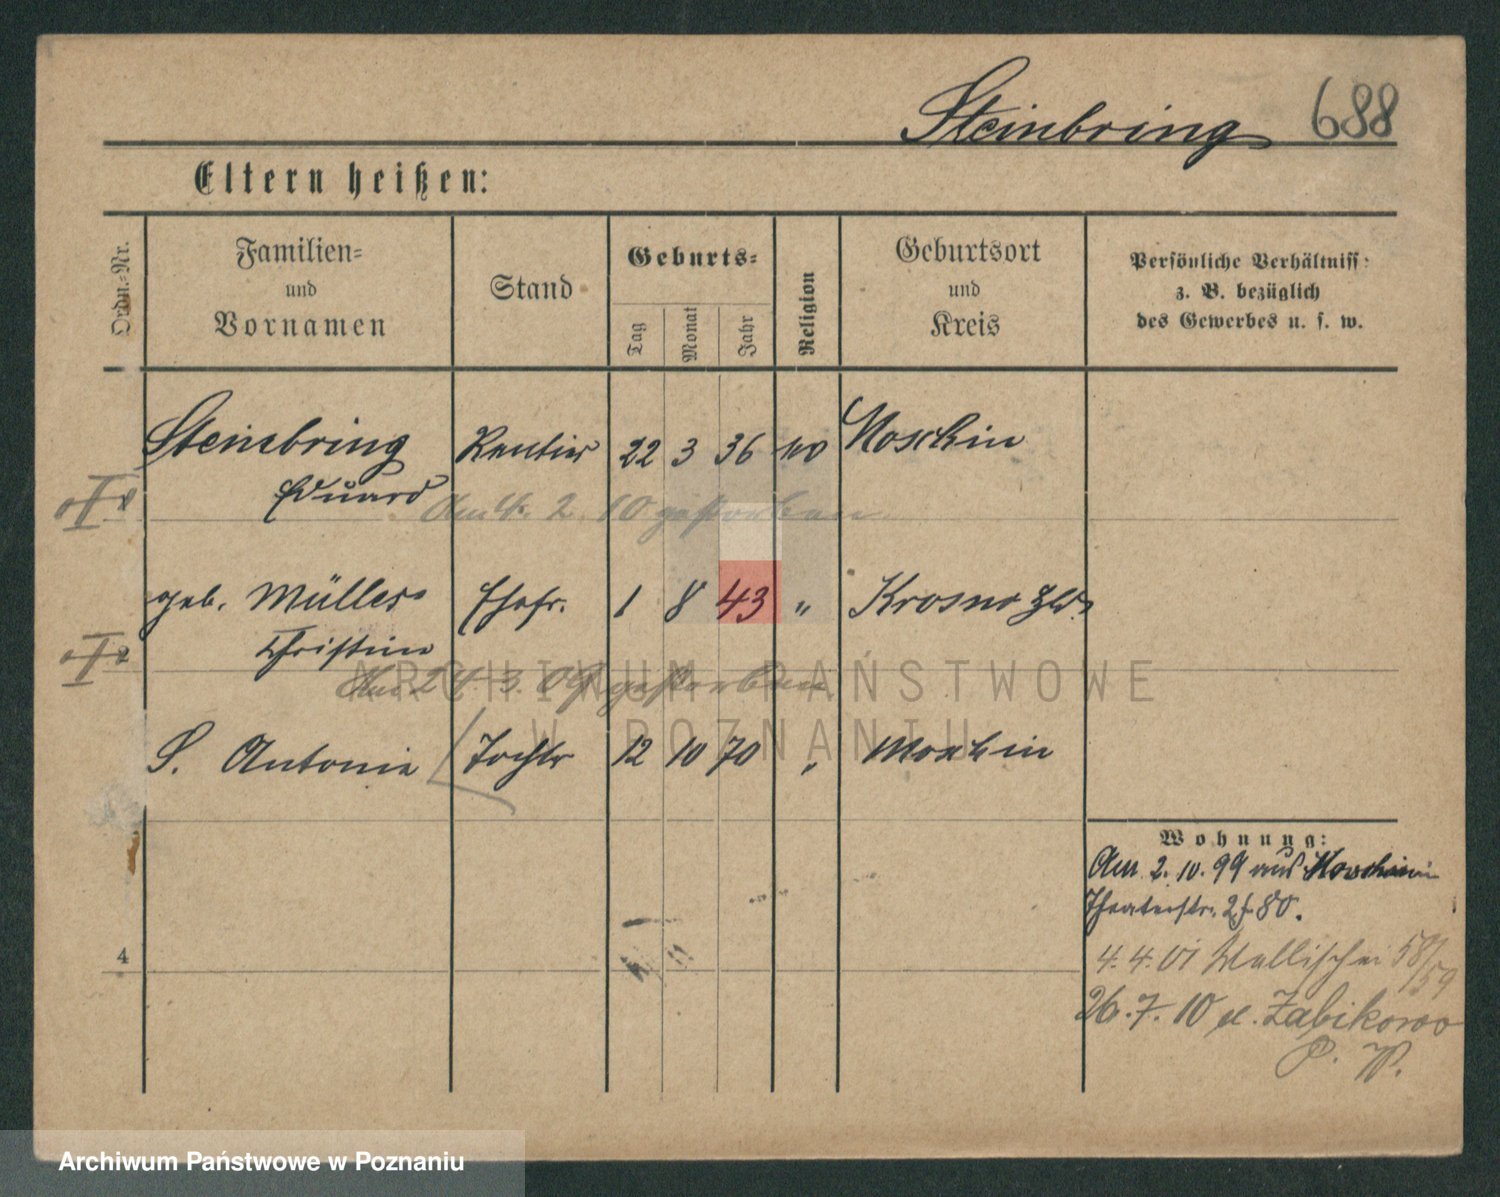 Steinbring 688
Eltern heißen:
Ordn.-Nr.
Familien-
und
Vornamen
Stand
Geburts-
Tag
Monat
Jahr
Religion
Geburtsort
und
Kreis
Persönliche Verhältniss
z. B. bezüglich
des Gewerbes u. s. w.
Steinbring Rentier 22 3 36 Moschin
Eduard
Am 2. 10 gestorben
geb. Müller Ehefr. 1 8 43 " Krosno
2 Christine
Am 24 3. 09 gestorben
ARCHIWUM PAŃSTWOWE
W POZNANIU
S. Antonie Tochter 12 10 70 " Moschin
Wohnung:
Am 2. 10. 99 aus Moschin
Theaterstr.
4
4. 4. 01 Wallischei 58/59
26. 7. 10 Zabikowo
P. W.
Archiwum Państwowe w Poznaniu